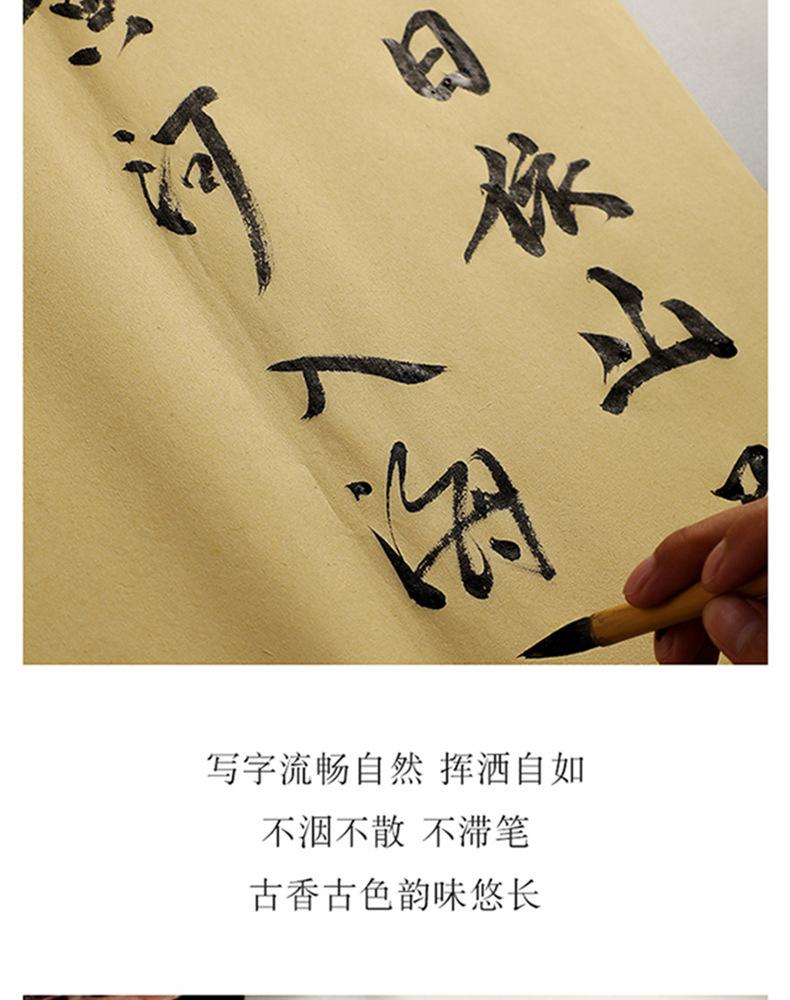 日依山
河入海
写字流畅自然 挥洒自如
不洇不散 不滞笔
古香古色韵味悠长